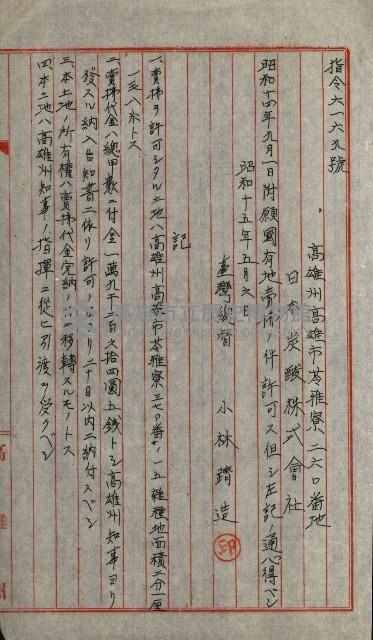 指令六一六九號
高雄州高雄市苓雅寮二六〇番地
日本炭酸株式會社
昭和十四年九月一日附願國有地賣拂ノ件許可ス但シ左記ノ通心得ベシ
昭和十五年五月六日
臺灣總督 小林躋造 印
記
一、賣拂ヲ許可シタル土地ハ高雄州高雄市苓雅寮三七〇番ノ一五雜種地面積二分一厘
一毛八糸トス
二、賣拂代金ハ總甲數ニ付金一萬九千二百六拾四圓五錢トシ高雄州知事ヨリ
發スル納入告知書ニ依リ許可ノ日ヨリ二十日以內ニ納付スベシ
三、本土地ノ所有權ハ賣拂代金完納ノ時移轉スルモノトス
四、本土地ハ高雄州知事ノ指揮ニ從ヒ引渡ヲ受クベシ
高雄州